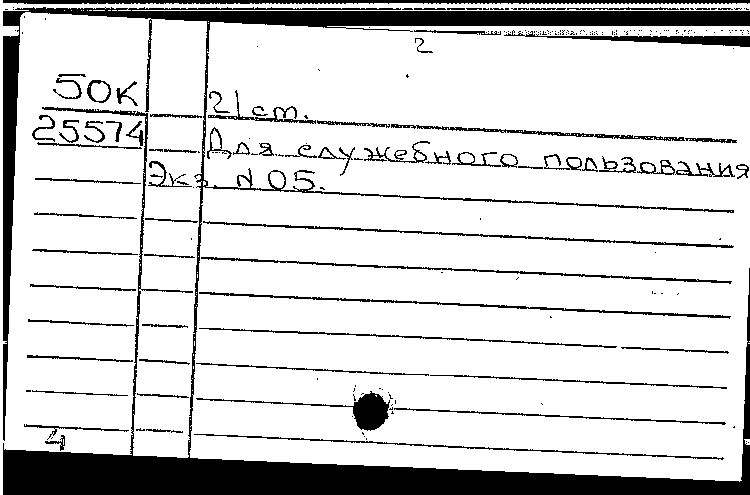 2
50К 21 ст.
25574 Для служебного пользования
Экз. N 05.
4